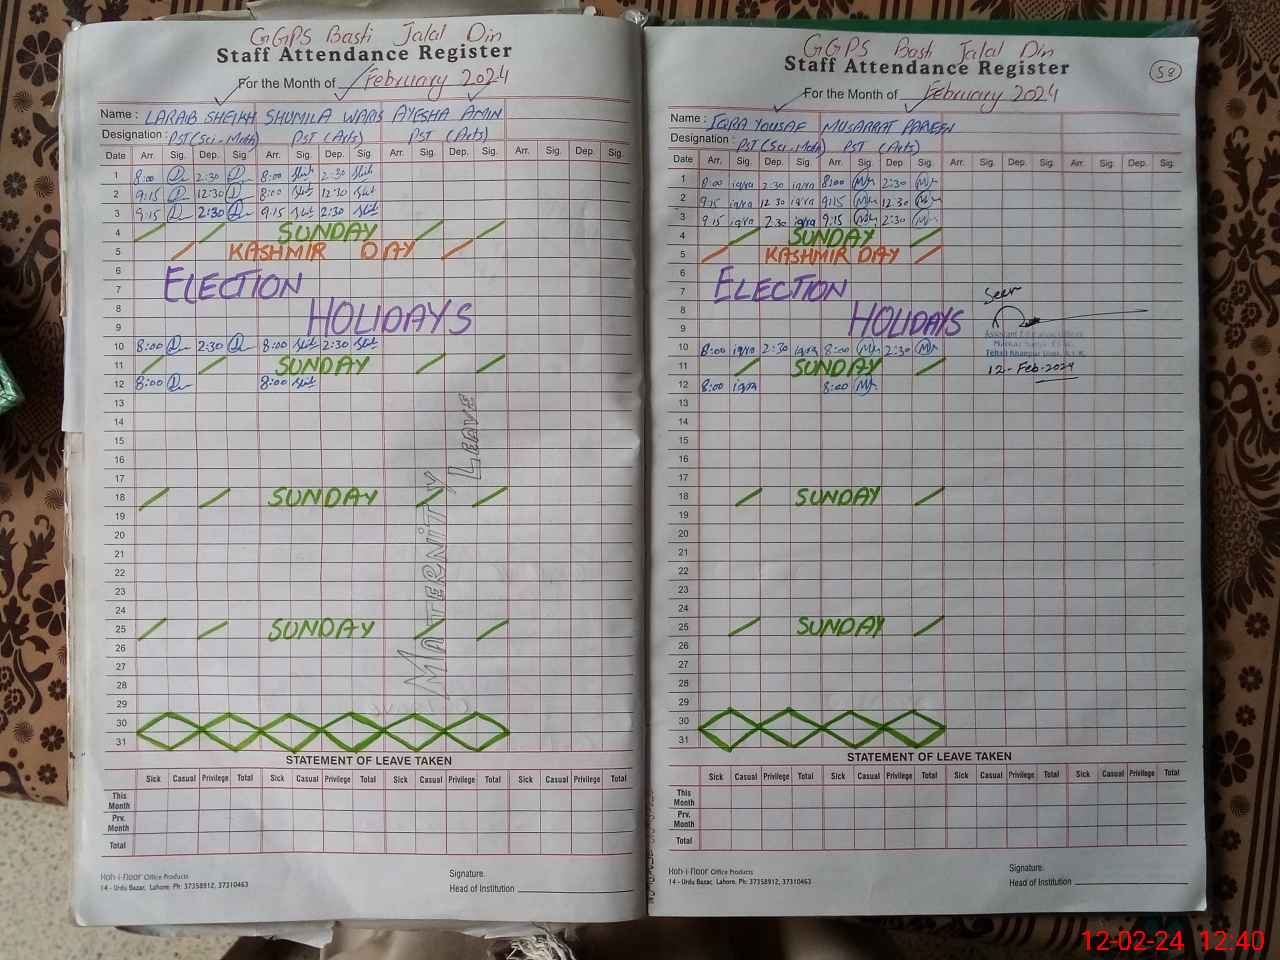 GGPS Basti Jalal Din
Staff Attendance Register
For the Month of February 2024
Name : LARAIB SHEIKH SHUMILA WARIS AYESHA AMIN
Designation : PST (Sci-Math) PST (Arts) PST (Arts)
Date Arr. Sig. Dep. Sig. Arr. Sig. Dep. Sig. Arr. Sig. Dep. Sig. Arr. Sig. Dep. Sig.
1 8:00 2:30 8:00 2:30
2 9:15 12:30 8:00 12:30
3 9:15 2:30 9:15 2:30
4 SUNDAY
5 KASHMIR DAY
6
7 ELECTION
8 HOLIDAYS
9
10 8:00 2:30 8:00 2:30
11 SUNDAY
12 8:00 8:00
13
14
15
16
17
18 SUNDAY
19
20
21
22
23
24
25 SUNDAY
26
27
28
29
30
31
MATERNITY LEAVE
STATEMENT OF LEAVE TAKEN
Sick Casual Privilege Total Sick Casual Privilege Total Sick Casual Privilege Total Sick Casual Privilege Total
This Month
Prv. Month
Total
Koh-i-Noor Office Products
14 - Urdu Bazar, Lahore. Ph: 37358912, 37310463
Signature.
Head of Institution
GGPS Basti Jalal Din
Staff Attendance Register
58
For the Month of February 2024
Name : IQRA YOUSAF MUSARRAT PARVEEN
Designation : PST (Sci-Math) PST (Arts)
Date Arr. Sig. Dep. Sig. Arr. Sig. Dep. Sig. Arr. Sig. Dep. Sig. Arr. Sig. Dep. Sig.
1 8:00 iqra 2:30 iqra 8:00 2:30
2 9:15 iqra 12:30 iqra 9:15 12:30
3 9:15 iqra 2:30 iqra 9:15 2:30
4 SUNDAY
5 KASHMIR DAY
6
7 ELECTION
8 HOLIDAYS
9
10 8:00 iqra 2:30 iqra 8:00 2:30
11 SUNDAY
12 8:00 iqra 8:00
13
14
15
16
17
18 SUNDAY
19
20
21
22
23
24
25 SUNDAY
26
27
28
29
30
31
Seen
12-Feb-2024
STATEMENT OF LEAVE TAKEN
Sick Casual Privilege Total Sick Casual Privilege Total Sick Casual Privilege Total Sick Casual Privilege Total
This Month
Prv. Month
Total
Koh-i-Noor Office Products
14 - Urdu Bazar, Lahore. Ph: 37358912, 37310463
Signature.
Head of Institution
12-02-24 12:40